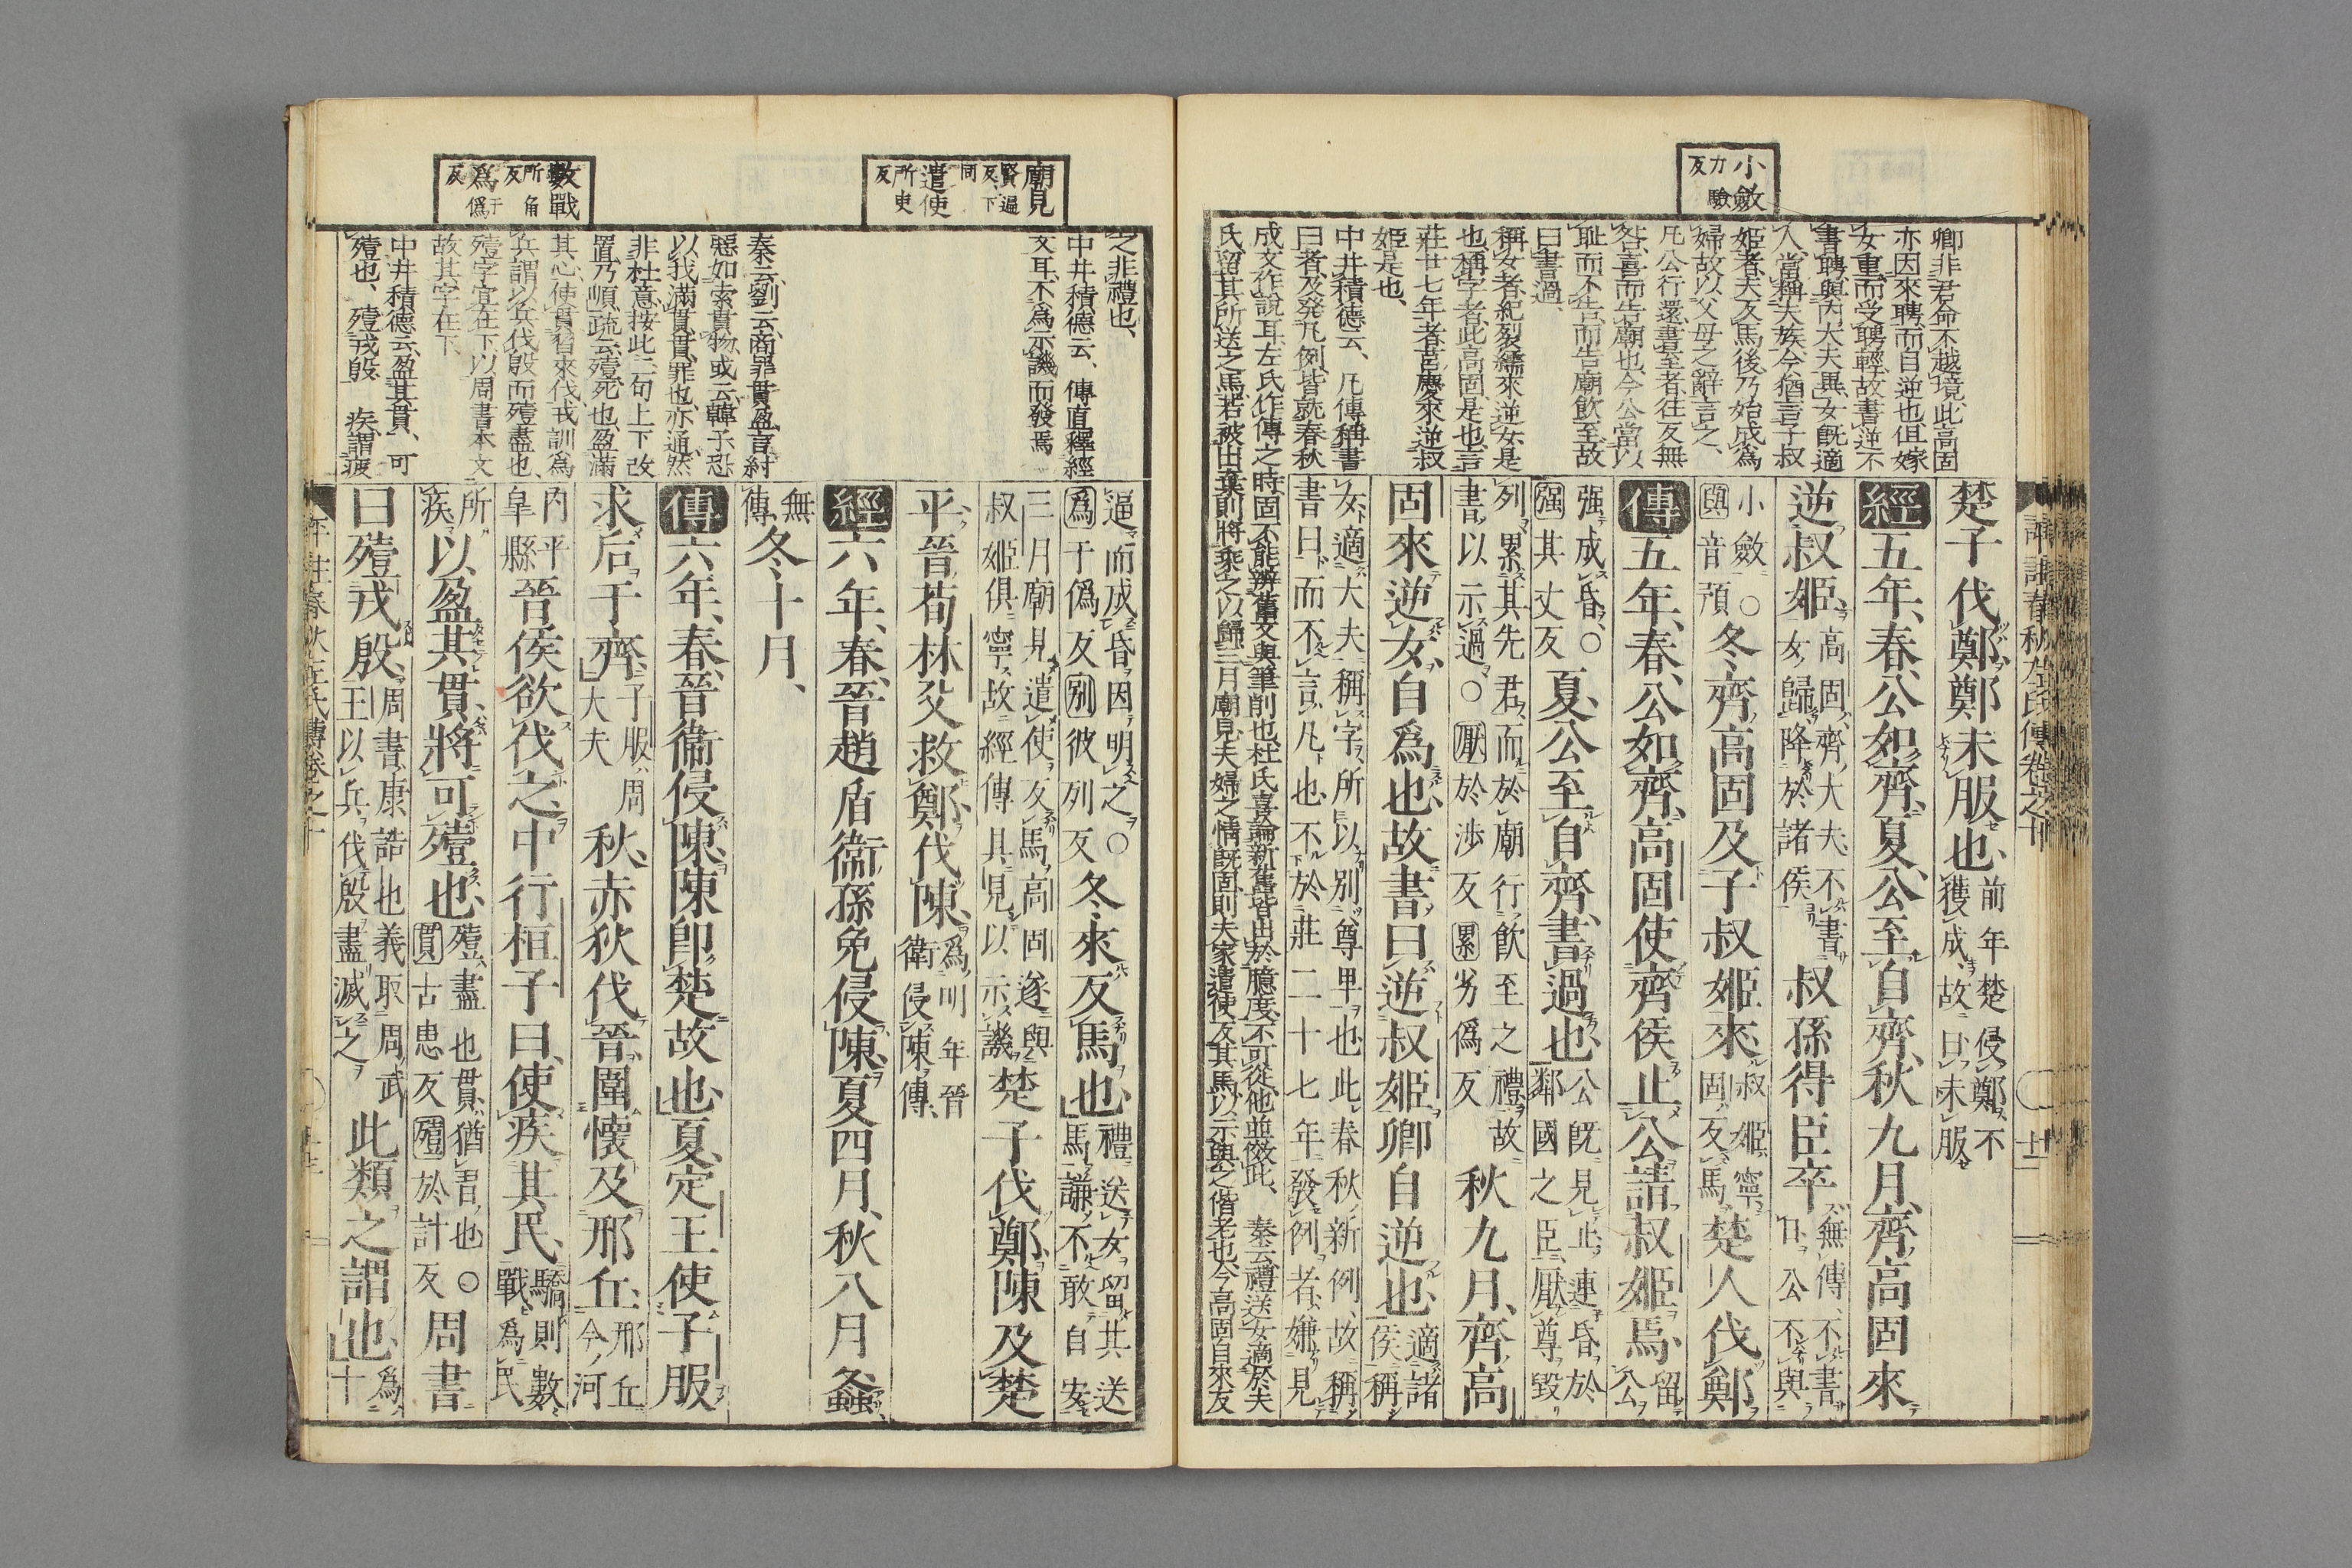 小斂
力驗
反
卿非君命不越境此高固
亦因來聘而自逆也但嫁
女重而受聘輕故書逆不
書聘與內大夫異女既適
人當稱夫族今猶言子叔
姬者夫反馬後乃始成爲
婦故以父母之辭言之
凡公行還書至者往反無
咎喜而告廟也今公當以
恥而不告而告廟飲至故
曰書過
稱女者紀裂繻來逆女是
也稱字者此高固是也言
莊廿七年者莒慶來逆叔
姬是也
中井積德云凡傳稱書
曰者及發凡例皆就春秋
成文作說耳左氏作傳之時固不能辨舊文與筆削也杜氏喜論新舊皆出於臆度不可從他並倣此 秦云禮送女適於夫
氏留其所送之馬若被出棄則將乘之以歸三月廟見夫婦之情既固則夫家遣使反其馬以示與之偕老也今高固自來反
楚子伐鄭鄭未服也前年楚侵鄭不
獲成故曰未服
經五年春公如齊夏公至自齊秋九月齊高固來
逆叔姬高固齊大夫不書
女歸降於諸侯叔孫得臣卒無傳不書
日公不與
小斂○
與音預冬齊高固及子叔姬來叔姬寧
固反馬楚人伐鄭
傳五年春公如齊高固使齊侯止公請叔姬焉留
公
强成昏○
强其丈反夏公至自齊書過也公既見止連昏於
鄰國之臣厭尊毀
列累其先君而於廟行飲至之禮故
書以示過○厭於涉反累劣僞反秋九月齊高
固來逆女自爲也故書曰逆叔姬卿自逆也適諸
侯稱
女適大夫稱字所以別尊卑也此春秋新例故稱
書曰而不言凡也不於莊二十七年發例者嫌見
廟見
賢遍
反下
同
遣使
所吏
反
數戰
所角
反
爲
于僞
反
之非禮也
中井積德云傳直釋經
文耳不爲示譏而發焉
秦云劉云商罪貫盈言紂
惡如索貫物或云韓子恐
以我滿貫貫罪也亦通然
非杜意按此二句上下改
置乃順疏云殪死也盈滿
其心使貫習來伐戎訓爲
兵謂以兵伐殷而殪盡也
殪字宜在下以周書本文
故其字在下
中井積德云盈其貫可
殪也殪戎殷 疾謂疲
逼而成昏因明之○
爲于僞反別彼列反冬來反馬也禮送女留其送
馬謙不敢自安
三月廟見遣使反馬高固遂與
叔姬俱寧故經傳具見以示譏楚子伐鄭陳及楚
平晉荀林父救鄭伐陳爲明年晉
衛侵陳傳
經六年春晉趙盾衞孫免侵陳夏四月秋八月螽
無
傳冬十月
傳六年春晉衞侵陳陳卽楚故也夏定王使子服
求后于齊子服周
大夫秋赤狄伐晉圍懷及邢丘邢丘
今河
內平
皐縣晉侯欲伐之中行桓子曰使疾其民驕則數
戰爲民
所
疾以盈其貫將可殪也殪盡也貫猶習也○
貫古患反殪於計反周書
曰殪戎殷周書康誥也義取周武
王以兵伐殷盡滅之此類之謂也爲
十